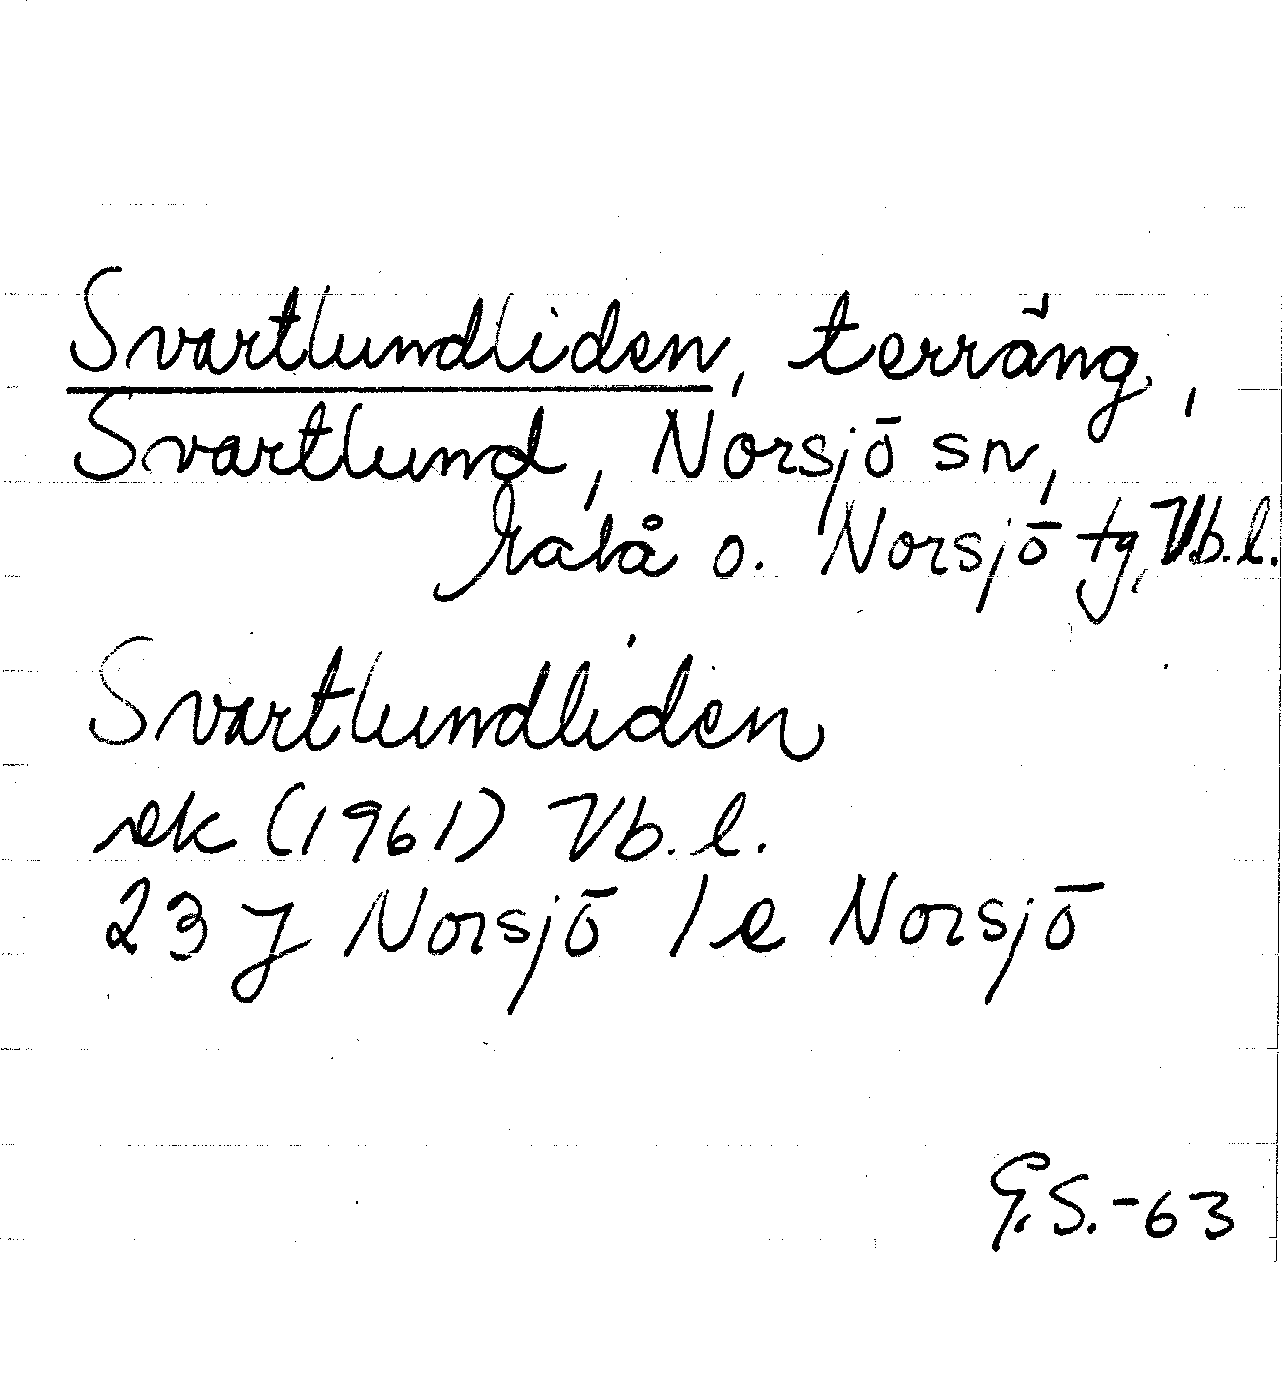 Svartlundliden, terräng,
Svartlund, Norsjö sn,
Malå o. Norsjö tg, Vb.l.
Svartlundliden
ek (1961) Vb. l.
23 J Norsjö 1 e Norsjö
G.S.-63